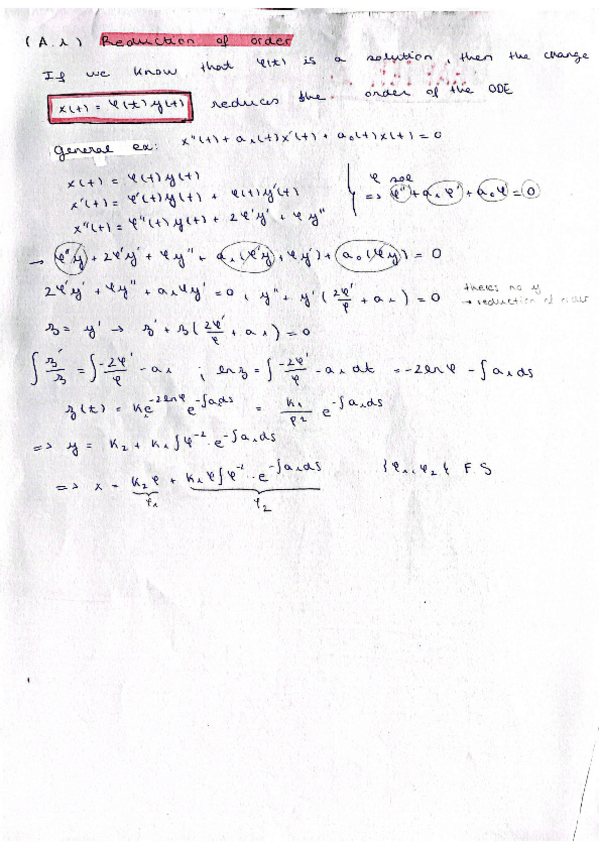 (A.1) Reduction of order
If we know that φ(t) is a solution, then the change
x(t) = φ(t) y(t) reduces the order of the ODE
general ex: x''(t) + a₁(t)x'(t) + a₀(t)x(t) = 0
x(t) = φ(t)y(t)
x'(t) = φ'(t)y(t) + φ(t)y'(t)
x''(t) = φ''(t)y(t) + 2φ'y' + φy''
φ sol
=> φ'' + a₁φ' + a₀φ = 0
→ φ''y + 2φ'y' + φy'' + a₁(φ'y + φy') + a₀(φy) = 0
2φ'y' + φy'' + a₁φy' = 0, y'' + y'(2φ'/φ + a₁) = 0 theres no y
→ reduction of order
z = y' → z' + z(2φ'/φ + a₁) = 0
∫ z'/z = ∫ -2φ'/φ - a₁ ; ln z = ∫ -2φ'/φ - a₁ dt = -2lnφ - ∫a₁ds
z(t) = k₁e^(-2lnφ) e^(-∫a₁ds) = k₁/φ² e^(-∫a₁ds)
=> y = k₂ + k₁∫φ⁻² e^(-∫a₁ds)
=> x = k₂φ + k₁φ∫φ⁻² · e^(-∫a₁ds) {φ₁, φ₂} F.S
φ₁ φ₂